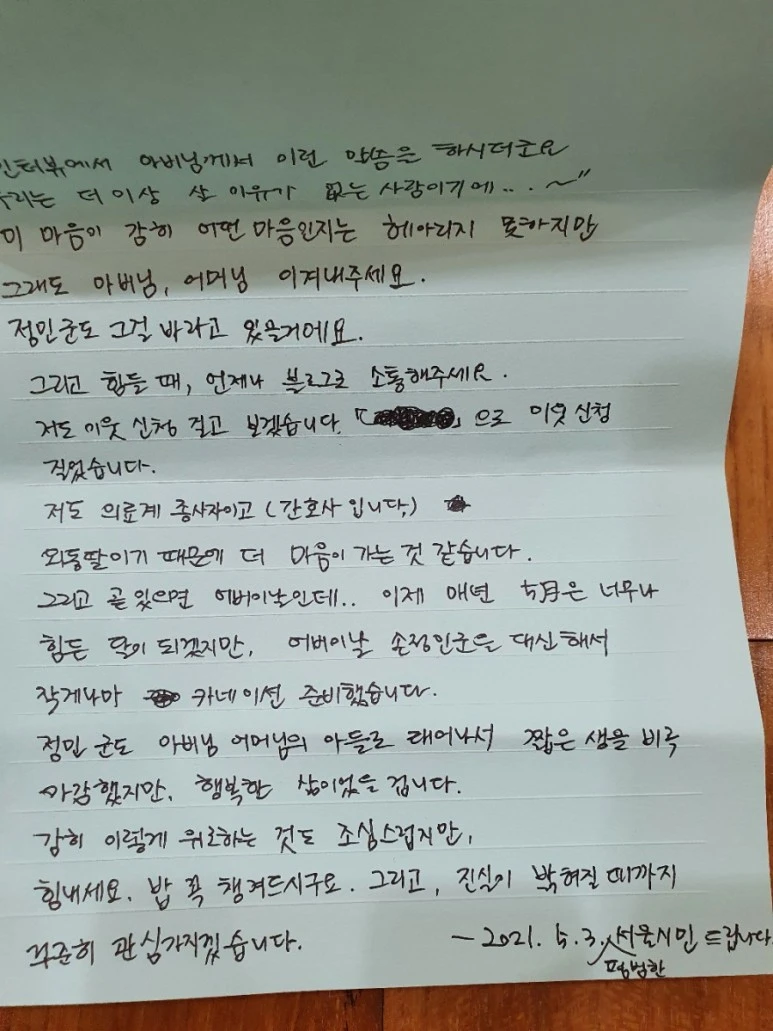 인터뷰에서 아버님께서 이런 말씀을 하시더군요
우리는 더 이상 살 이유가 없는 사람이기에.. . ~"
이 마음이 감히 어떤 마음인지는 헤아리지 못하지만
그래도 아버님, 어머님 이겨내주세요.
정민군도 그걸 바라고 있을거에요.
그리고 힘들 때, 언제나 블로그로 소통해주세요.
저도 이웃 신청 걸고 보겠습니다. 「 」으로 이웃신청
걸었습니다.
저도 의료계 종사자이고 (간호사입니다.)
외동딸이기 때문에 더 마음이 가는 것 같습니다.
그리고 곧 있으면 어버이날인데.. 이제 매년 5月은 너무나
힘든 달이 되겠지만, 어버이날 손정민군을 대신해서
작게나마 카네이션 준비했습니다.
정민 군도 아버님 어머님의 아들로 태어나서 짧은 생을 비록
마감했지만, 행복한 삶이었을 겁니다.
감히 이렇게 위로하는 것도 조심스럽지만,
힘내세요. 밥 꼭 챙겨드시구요. 그리고, 진실이 밝혀질 때까지
꾸준히 관심가지겠습니다.
- 2021. 5. 3. 평범한 서울시민 드립니다.